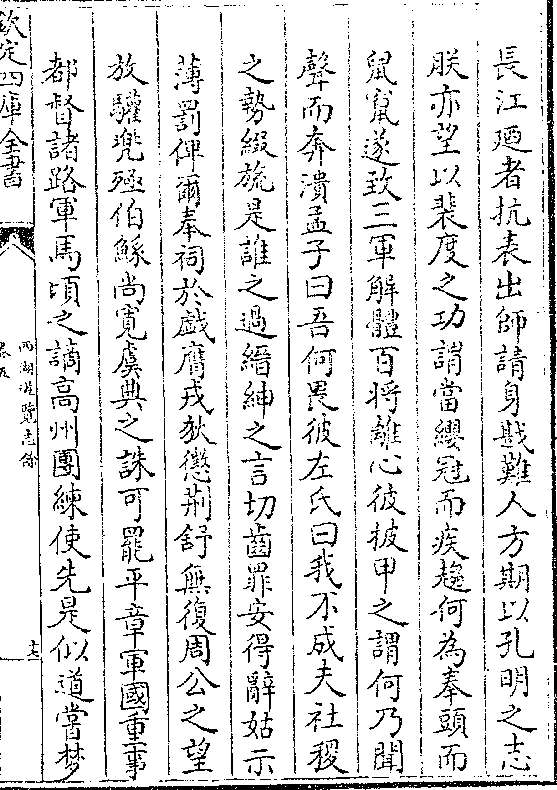 長江廼者抗表出師請身戡難人方期以孔明之志
朕亦望以裴度之功謂當纓冠而疾趨何為奉頭而
鼠竄遂致三軍解體百將離心彼披甲之謂何乃聞
聲而奔潰孟子曰吾何畏彼左氏曰我不成夫社稷
之勢綴旒是誰之過縉紳之言切齒罪安得辭姑示
薄罰俾爾奉祠於戲膺戎狄懲荆舒無復周公之望
放驩兜殛伯鯀尚寛虞典之誅可罷平章軍國重事
都督諸路軍馬頃之謫髙州團練使先是似道嘗梦
欽定四庫全書
西湖遊覽志餘
卷五